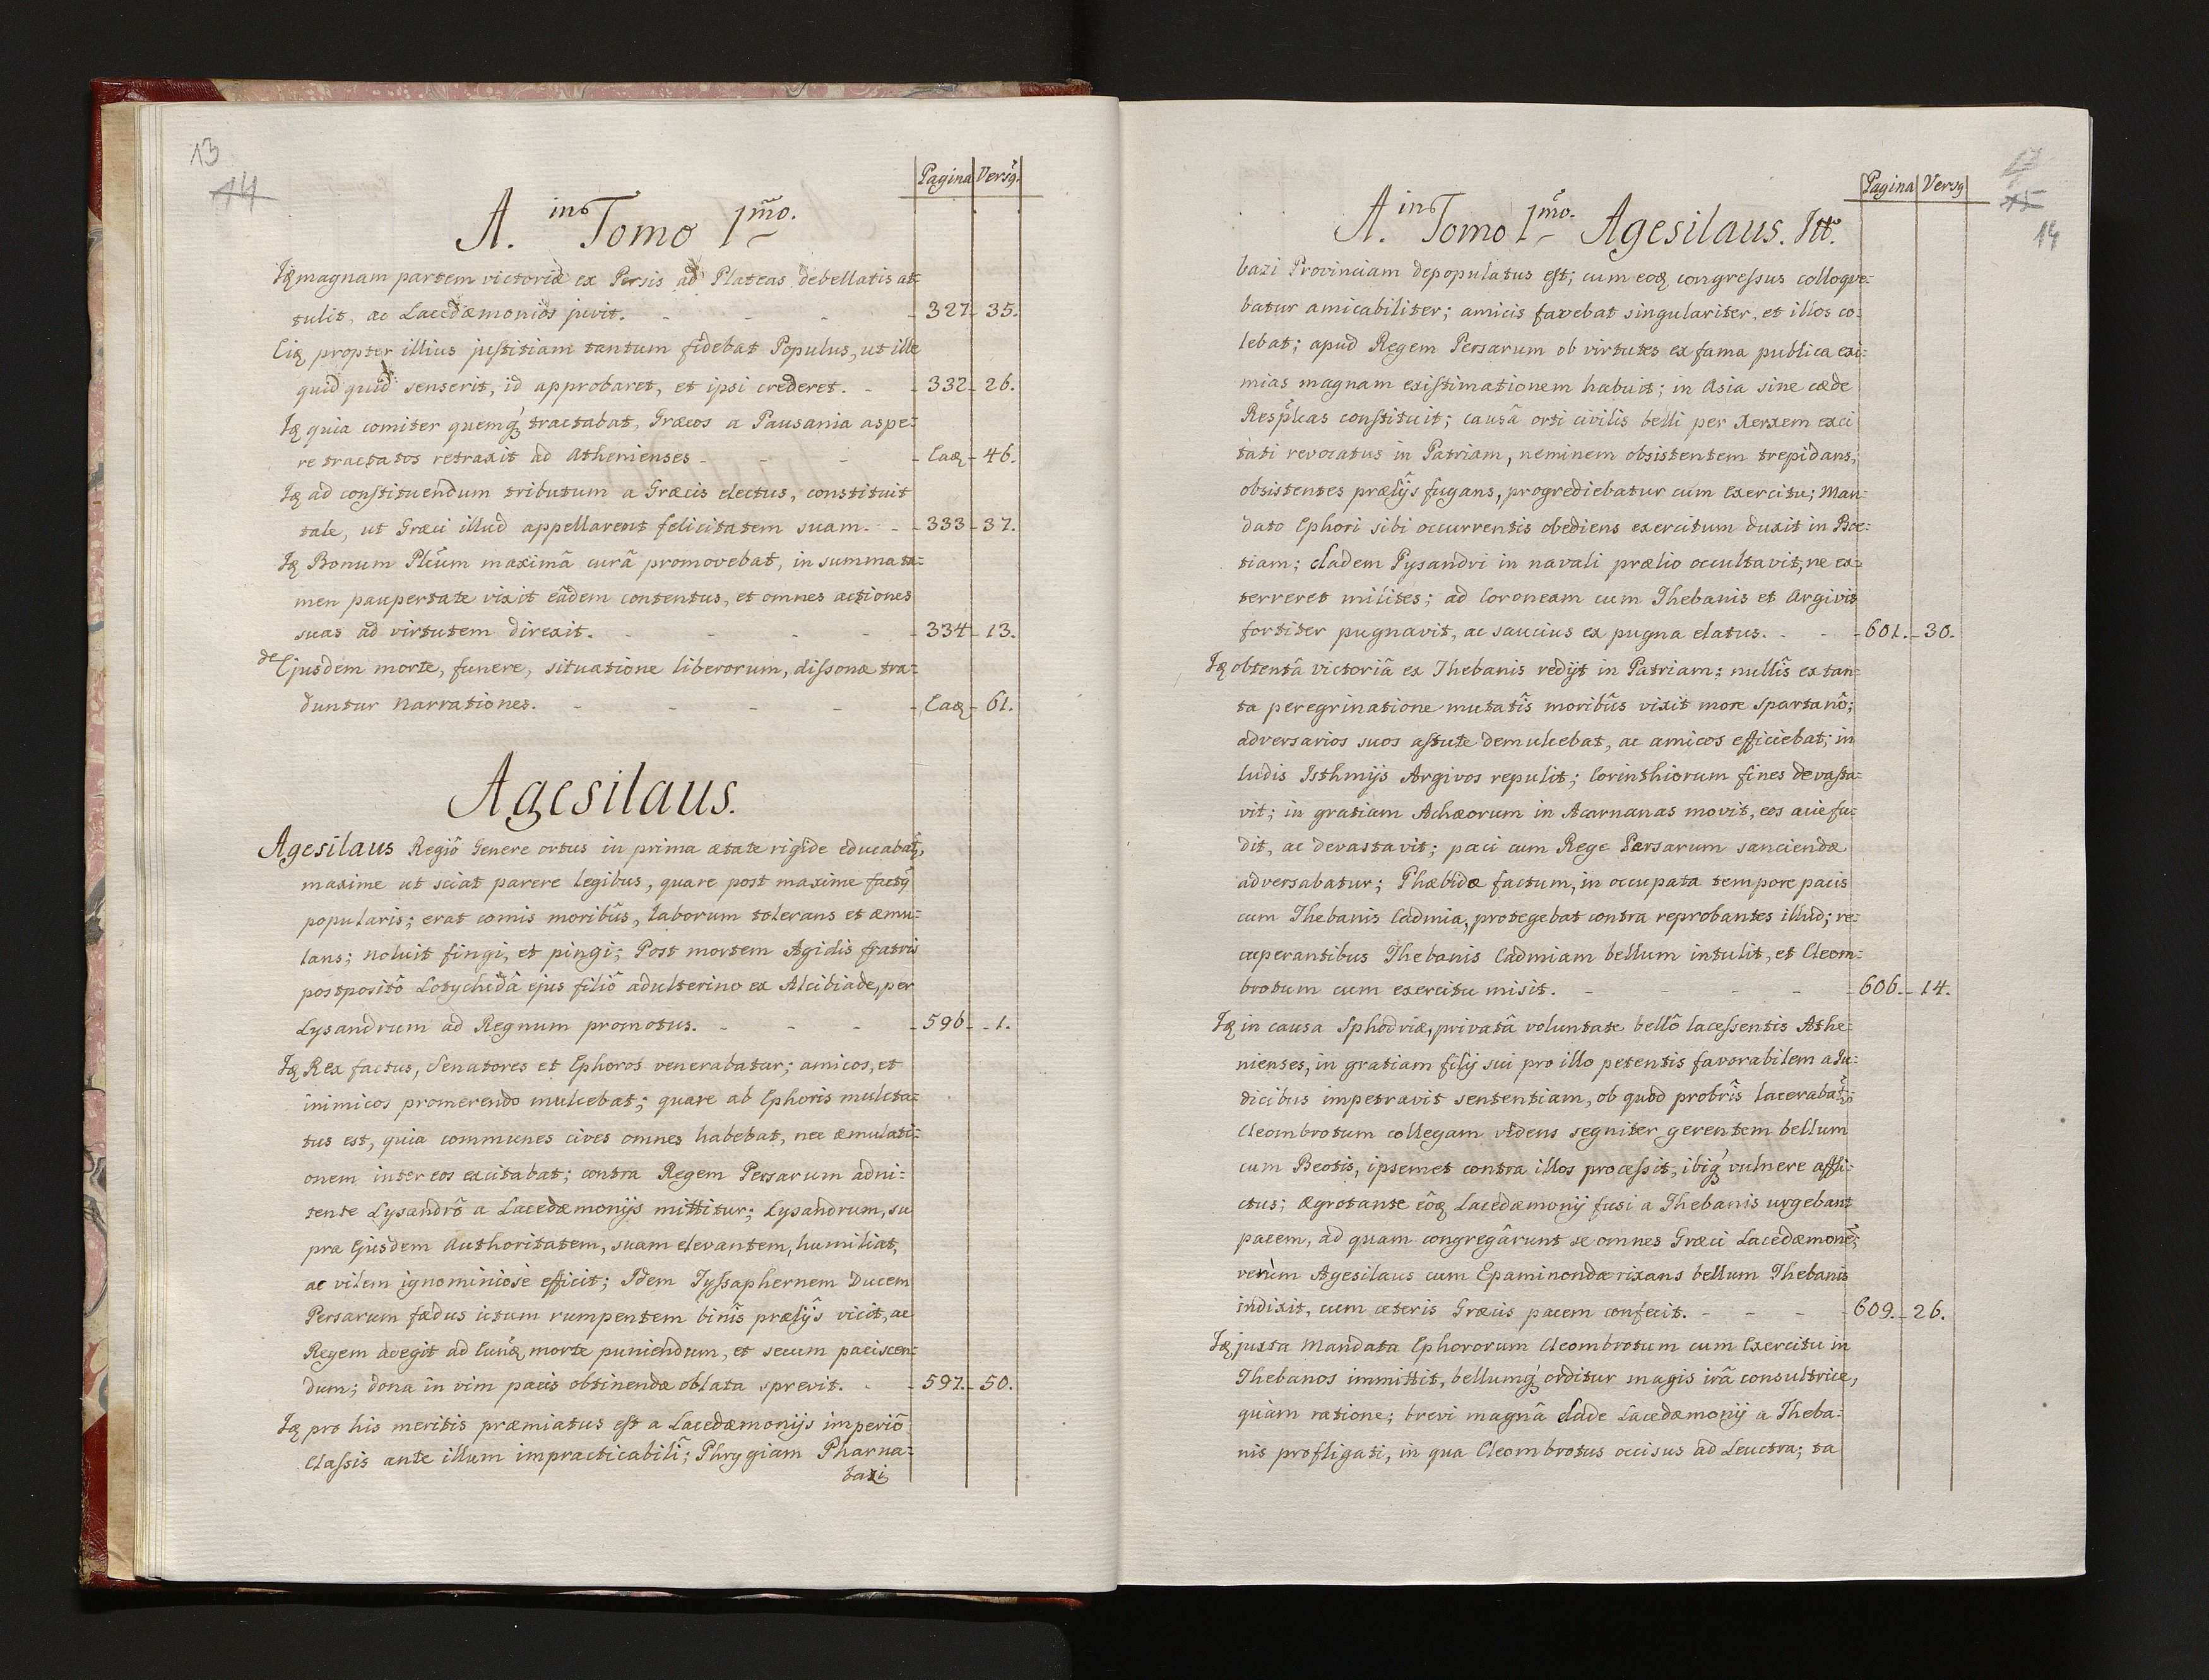 13
14
Pagina Versq.
A. in Tomo 1mo.
Iq magnam partem victoriæ ex Persis ad Plateas debellatis at-
tulit, ac Lacedæmonios juvit. - - - - 327. 35.
Eiq propter illius justitiam tantum fidebat Populus, ut ille
quid quid senserit, id approbaret, et ipsi crederet. - 332. 26.
Iq quia comiter quemq tractabat, Græcos a Pausania aspe-
re tractatos retraxit ad Athenienses - - - Eaq - 46.
Iq ad constituendum tributum a Græcis electus, constituit
tale, ut Græci illud appellarent felicitatem suam. - 333 - 37.
Iq Bonum Plcum maximâ curâ promovebat, in summa ta-
men paupertate vixit eâdem contentus, et omnes actiones
suas ad virtutem direxit. - - - - 334 - 13.
de Ejusdem morte, funere, situatione liberorum, dissonæ tra-
duntur narrationes. - - - - - Eaq - 61.
Agesilaus.
Agesilaus Regiô Genere ortus in prima ætate rigide educabat,
maxime ut sciat parere legibus, quare post maxime factq
popularis; erat comis moribûs, laborum tolerans et æmu-
lans; noluit fingi, et pingi; Post mortem Agidis fratris
postpositô Lotychidâ ejus filiô adulterino ex Alcibiade, per
Lysandrum ad Regnum promotus. - - - 596 - 1.
Iq Rex factus, Senatores et Ephoros venerabatur; amicos, et
inimicos promerendo mulcebat; quare ab Ephoris mulcta-
tus est, quia communes cives omnes habebat, nec æmulati-
onem inter eos excitabat; contra Regem Persarum adni-
tente Lysandrô a Lacedæmonijs mittitur; Lysandrum, su
pra Ejusdem Authoritatem, suam elevantem, humiliat,
ac vilem ignominiosè efficit; Idem Tyssaphernem Ducem
Persarum fædus ictum rumpentem binîs prælijs vicit, ac
Regem adegit ad Eunq morte puniendum, et secum paciscen-
dum; dona in vim pacis obtinendæ oblata sprevit. - 597. - 50.
Iq pro his meritis præmiatus est a Lacedæmonijs imperiô
Classis ante illum impracticabilî; Phrygiam Pharna-
bazi
Pagina Versq
14
A. in Tomo 1mo. Agesilaus. Itt.
bazi Provinciam depopulatus est; cum eoq congressus colloque-
batur amicabiliter; amicis favebat singulariter, et illos co-
lebat; apud Regem Persarum ob virtutes ex fama publica exi-
mias magnam existimationem habuit; in Asia sine cæde
Resplcas constituit; causâ orti civilis belli per Xerxem exci
tati revocatus in Patriam, neminem obsistentem trepidans,
obsistentes prælijs fugans, progrediebatur cum Exercitu; Man-
dato Ephori sibi occurrentis obediens exercitum duxit in Bœ-
tiam; cladem Pysandri in navali prælio occultavit, ne ex-
terreret milites; ad Coroneam cum Thebanis et Argivis
fortiter pugnavit, ac saucius ex pugna elatus. - - 601. - 30.
Iq obtentâ victoriâ ex Thebanis redijt in Patriam; nullîs ex tan-
ta peregrinatione mutatîs moribûs vixit more Spartanô;
adversarios suos astute demulcebat, ac amicos efficiebat; in
ludis Isthmijs Argivos repulit; Corinthiorum fines devasta-
vit; in gratiam Achæorum in Acarnanas movit, eos acie fu-
dit, ac devastavit; paci cum Rege Persarum sanciendæ
adversabatur; Phæbidæ factum, in occupata tempore pacis
cum Thebanis Cadmia, protegebat contra reprobantes illud; re-
cuperantibus Thebanis Cadmiam bellum intulit, et Cleom-
brotum cum exercitu misit. - - - - - 606. - 14.
Iq in causa Sphodriæ, privatâ voluntate bellô lacessentis Athe-
nienses, in gratiam filij sui pro illo petentis favorabilem a Ju-
dicibus impetravit sententiam, ob quod probrîs lacerabat;
Cleombrotum collegam videns segniter gerentem bellum
cum Beotis, ipsemet contra illos processit, ibiq vulnere affli-
ctus; ægrotante eôq Lacedæmonij fusi a Thebanis urgebant
pacem, ad quam congregârunt se omnes Græci Lacedæmone;
verùm Agesilaus cum Epaminonda rixans bellum Thebanis
indixit, cum cæteris Græcis pacem confecit. - - - 609. - 26.
Iq juxta Mandata Ephororum Cleombrotum cum Exercitu in
Thebanos immittit, bellumq orditur magis irâ consultrice,
quàm ratione; brevi magnâ clade Lacedæmonij a Theba-
nis profligati, in qua Cleombrotus occisus ad Leuctra; ta